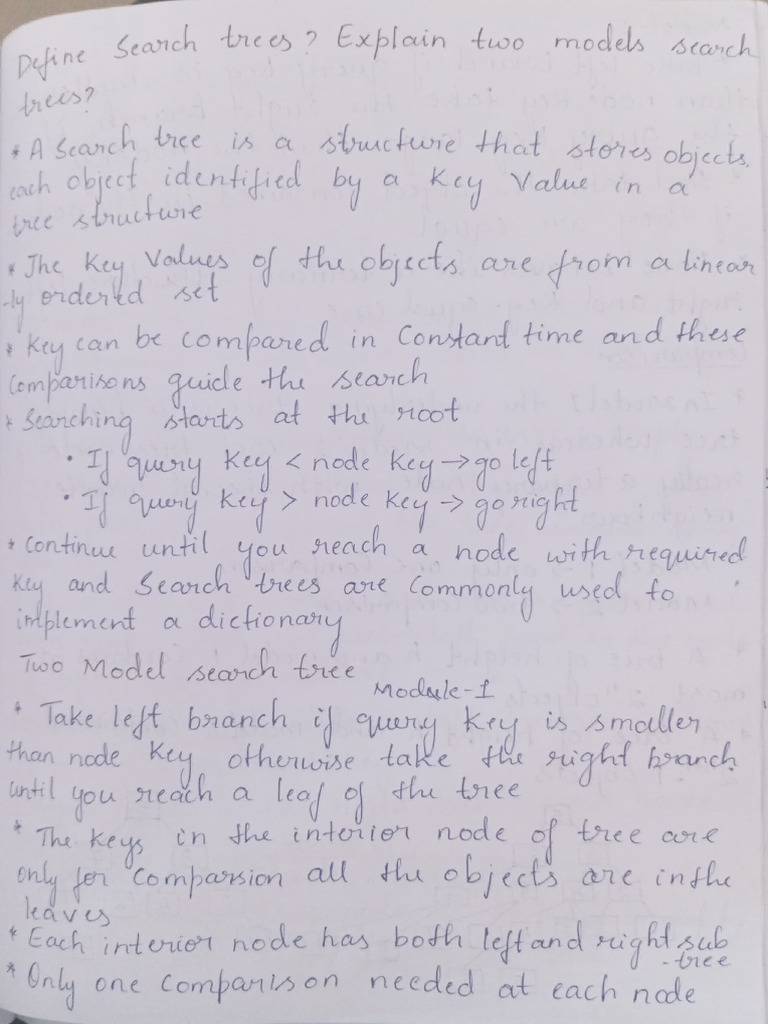 Define Search trees? Explain two models search
trees?
* A Search tree is a structure that stores objects,
each object identified by a Key Value in a
tree structure
* The Key Values of the objects are from a linear
-ly ordered set
* Key can be compared in Constant time and these
Comparisons guide the search
* Searching starts at the root
• If query Key < node Key → go left
• If query Key > node Key → go right
* Continue until you reach a node with required
Key and Search trees are Commonly used to
implement a dictionary
Two Model search tree
Module-1
* Take left branch if query Key is smaller
than node Key otherwise take the right branch
until you reach a leaf of the tree
* The Keys in the interior node of tree are
only for Comparsion all the objects are in the
leaves
* Each interior node has both left and right sub
-tree
* Only one Comparison needed at each node